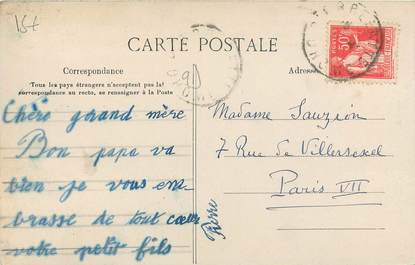 15+
CARTE POSTALE
Correspondance
Tous les pays étrangers n'acceptent pas la
correspondance au recto, se renseigner à la Poste
Adres
POSTES
50
Chère grand mère
Bon papa va
bien je vous em
brasse de tout cœur
votre petit fils
Pierre
Madame Sauzion
7 Rue de Villersexel
Paris VII